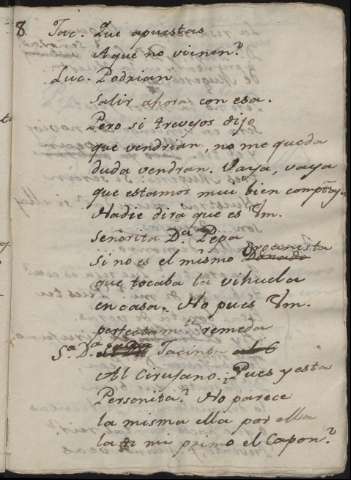 8 Jac. Que apuestas
Aque no vienen?
Luc. Podrian
salir ahora con esa.
Pero si trevejos dijo
que vendrian, no me queda
duda vendran. Vaya, vaya
que estamos mui bien
Nadie dirá que es Vm.
señorita D.ª Pepa
si no es el mismo Organista
que tocaba la vihuela
en casa. No pues Vm.
perfectam.te remeda
S.ª D.ª Jacinta
Al Cirujano. Pues y esta
Personita? No parece
la misma ella por ella
la mi primo el Capon?